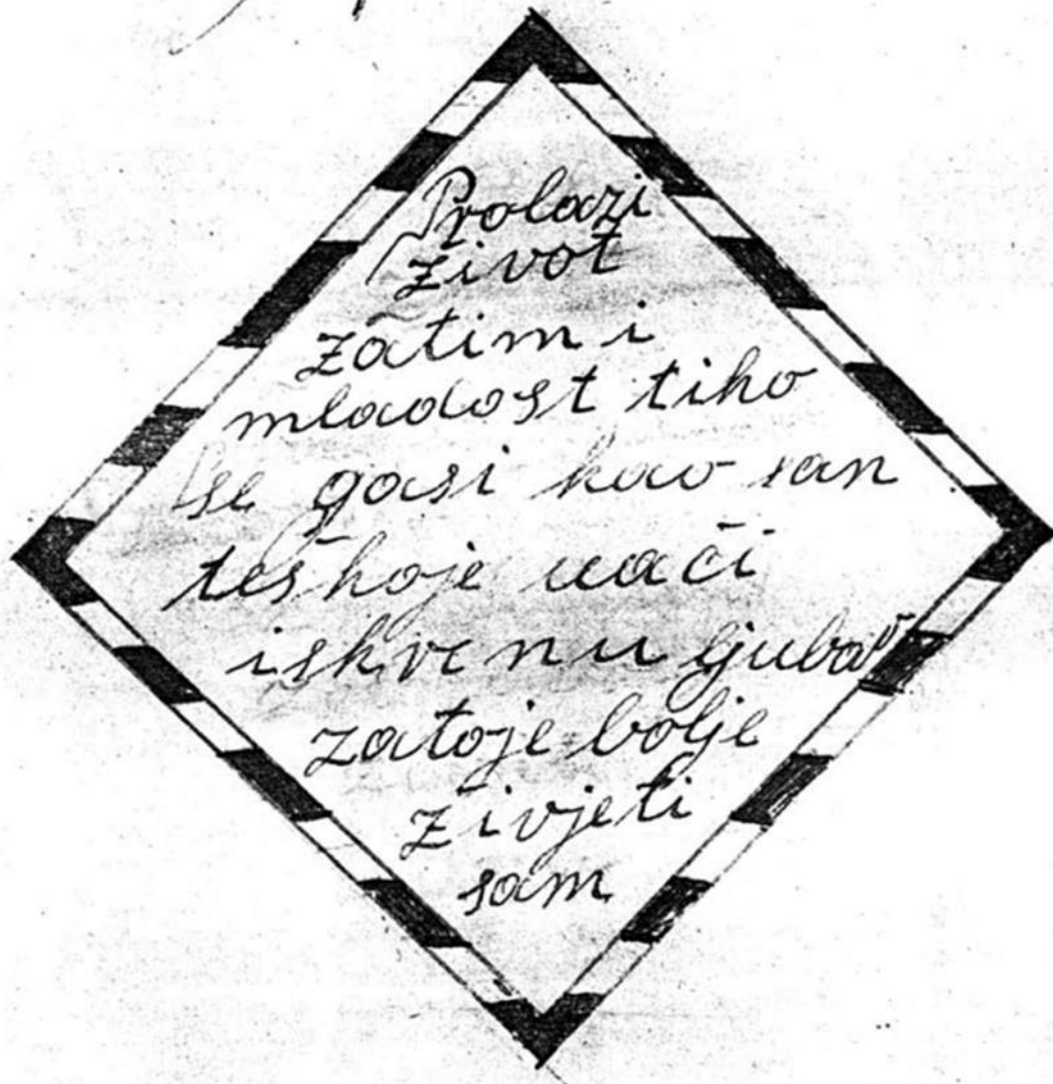 Prolazi
život
zatim i
mladost tiho
se gasi kao san
teškoje naći
iskrenu ljubav
zatoje bolje
živjeti
sam